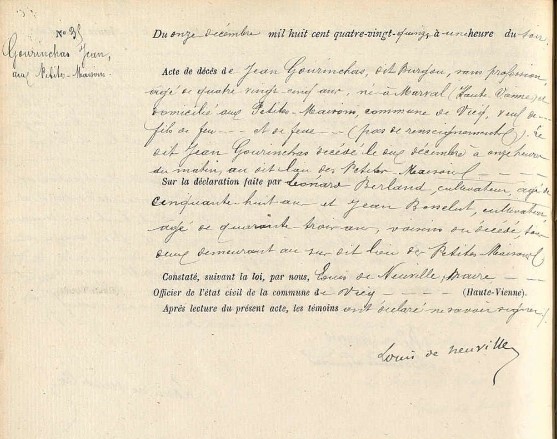 No 35
Gourinchas Jean,
aux Petites-Maisons.
Du onze décembre mil huit cent quatre-vingt-quinze à une heure du soir
Acte de décès de Jean Gourinchas, dit Burjou, sans profession
agé de quatre vingt cinq ans, né à Marval (Haute Vienne)
domicilié aux Petites-Maisons, commune de Vicq, veuf de
fils de feu — et de feue — (pas de renseignements). Le
dit Jean Gourinchas décédé le onze décembre à onze heures
du matin, au dit lieu des Petites Maisons
Sur la déclaration faite par Léonard Berland, cultivateur, agé de
cinquante huit ans et Jean Bonelut, cultivateur
agé de quarante trois ans, voisins du décédé tous
deux demeurant au sus dit lieu des Petites Maisons
Constaté, suivant la loi, par nous, Louis de Neuville, maire
Officier de l'état civil de la commune de Vicq (Haute-Vienne).
Après lecture du présent acte, les témoins ont déclaré ne savoir signer.
Louis de Neuville